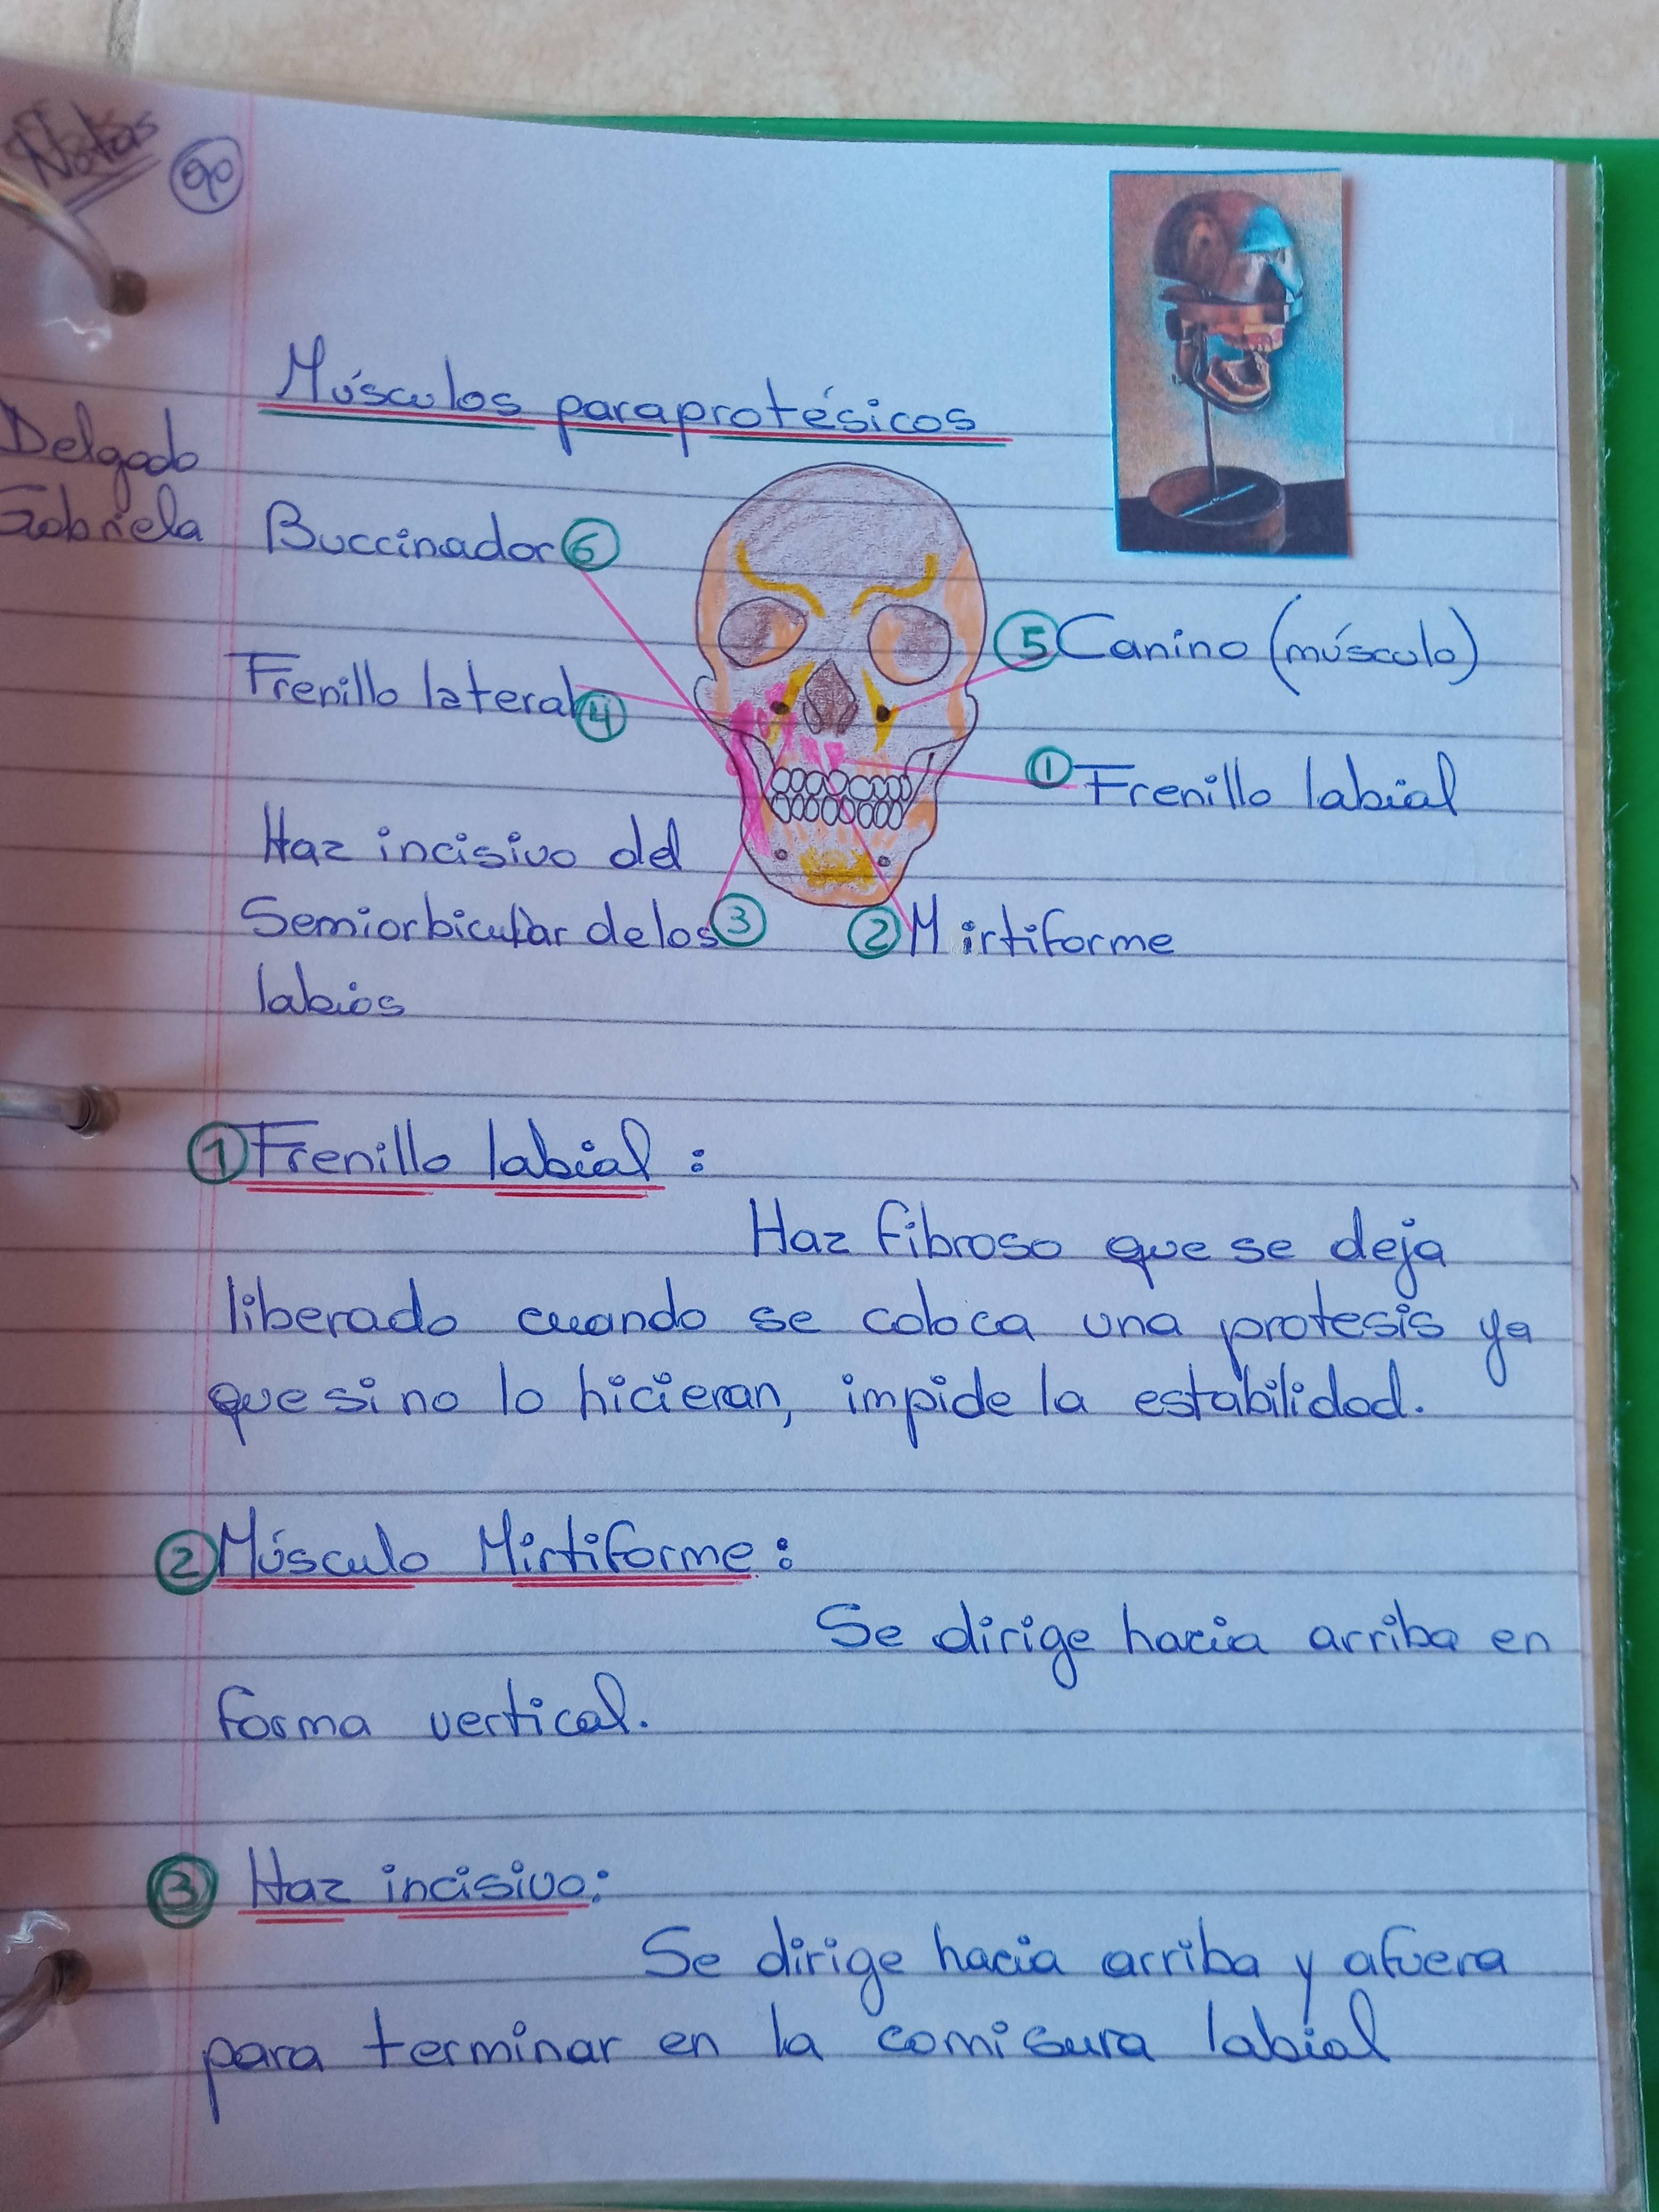 Notas
90
Músculos paraprotésicos
Delgado
Gabriela
Buccinador 6
5 Canino (músculo)
Frenillo lateral 4
1 Frenillo labial
Haz incisivo del
Semiorbicular de los 3
labios
2 Mirtiforme
1 Frenillo labial :
Haz fibroso que se deja
liberado cuando se coloca una protesis ya
que si no lo hicieran, impide la estabilidad.
2 Músculo Mirtiforme :
Se dirige hacia arriba en
forma vertical.
3 Haz incisivo :
Se dirige hacia arriba y afuera
para terminar en la comisura labial